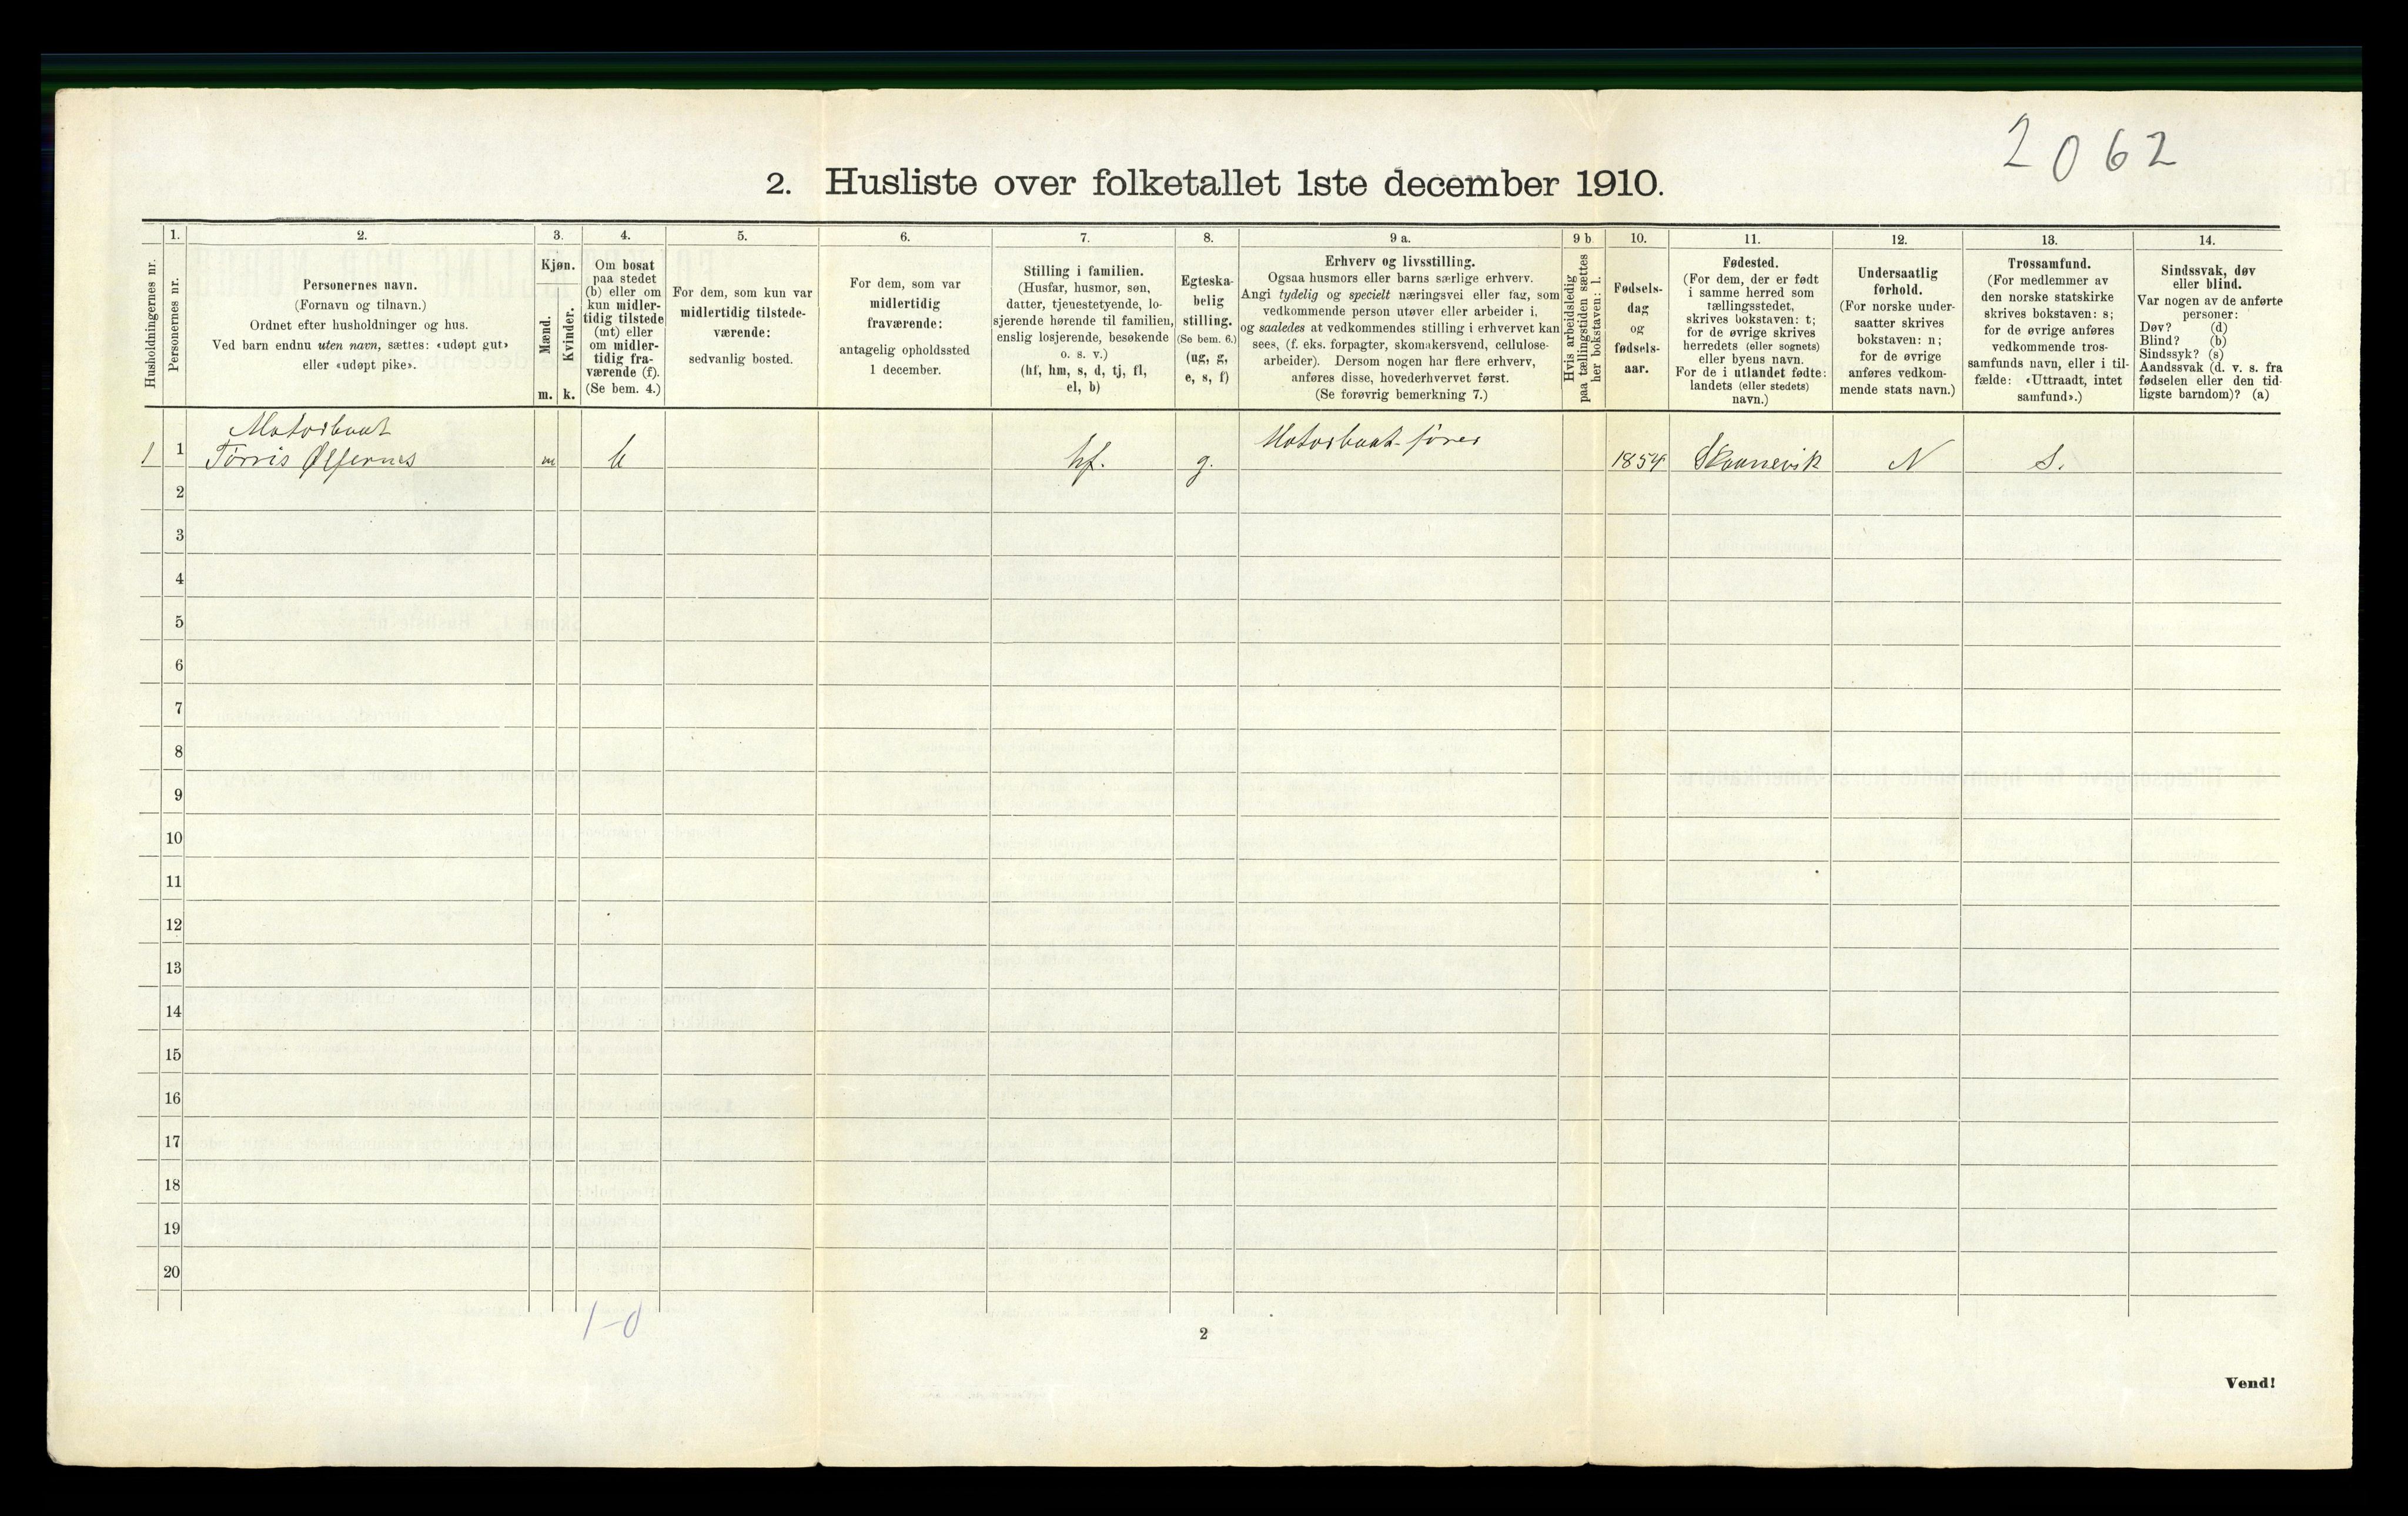 2062
2. Husliste over folketallet 1ste december 1910.
Husholdningernes nr.
1.
Personernes nr.
2.
Personernes navn.
(Fornavn og tilnavn.)
Ordnet efter husholdninger og hus.
Ved barn endnu uten navn, sættes: «udøpt gut»
eller «udøpt pike».
3.
Kjøn.
Mænd.
Kvinder.
m. k.
4.
Om bosat
paa stedet
(b) eller om
kun midler-
tidig tilstede
(mt) eller
om midler-
tidig fra-
værende (f).
(Se bem. 4.)
5.
For dem, som kun var
midlertidig tilstede-
værende:
sedvanlig bosted.
6.
For dem, som var
midlertidig
fraværende:
antagelig opholdssted
1 december.
7.
Stilling i familien.
(Husfar, husmor, søn,
datter, tjenestetyende, lo-
sjerende hørende til familien,
enslig losjerende, besøkende
o. s. v.)
(hf, hm, s, d, tj, fl,
el, b)
8.
Egteska-
belig
stilling.
(Se bem. 6.)
(ug, g,
e, s, f)
9 a.
Erhverv og livsstilling.
Ogsaa husmors eller barns særlige erhverv.
Angi tydelig og specielt næringsvei eller fag, som
vedkommende person utøver eller arbeider i,
og saaledes at vedkommendes stilling i erhvervet kan
sees, (f. eks. forpagter, skomakersvend, cellulose-
arbeider). Dersom nogen har flere erhverv,
anføres disse, hovederhvervet først.
(Se forøvrig bemerkning 7.)
9 b
Hvis arbeidsledig
paa tællingstiden sættes
her bokstaven: l.
10.
Fødsels-
dag
og
fødsels-
aar.
11.
Fødested.
(For dem, der er født
i samme herred som
tællingsstedet,
skrives bokstaven: t;
for de øvrige skrives
herredets (eller sognets)
eller byens navn.
For de i utlandet fødte:
landets (eller stedets)
navn.)
12.
Undersaatlig
forhold.
(For norske under-
saatter skrives
bokstaven: n;
for de øvrige
anføres vedkom-
mende stats navn.)
13.
Trossamfund.
(For medlemmer av
den norske statskirke
skrives bokstaven: s;
for de øvrige anføres
vedkommende tros-
samfunds navn, eller i til-
fælde: «Uttraadt, intet
samfund».)
14.
Sindssvak, døv
eller blind.
Var nogen av de anførte
personer:
Døv? (d)
Blind? (b)
Sindssyk? (s)
Aandssvak (d. v. s. fra
fødselen eller den tid-
ligste barndom)? (a)
Motorbaat
1 1 Tørris Ølfernes m b hf. g. Motorbaat-fører 1854 Skaanevik N S.
2
3
4
5
6
7
8
9
10
11
12
13
14
15
16
17
18
19
20
1-0
2
Vend!